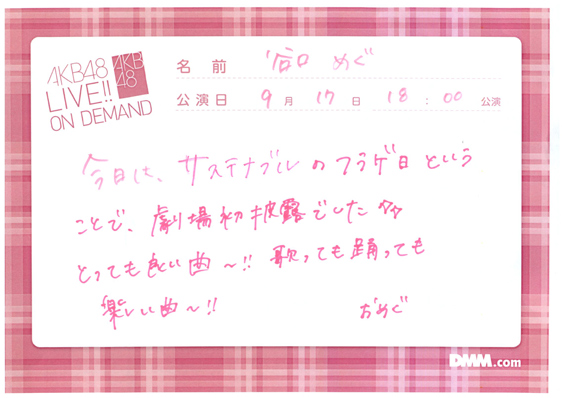 AKB48
LIVE!!
ON DEMAND
AKB
48
名前 谷口 めぐ
公演日 9月 17日 18:00 公演
今日は、サステナブルのフラゲ日という
ことで、劇場初披露でした☆☆
とっても良い曲〜!! 歌っても踊っても
楽しい曲〜!!
おめぐ
DMM.com